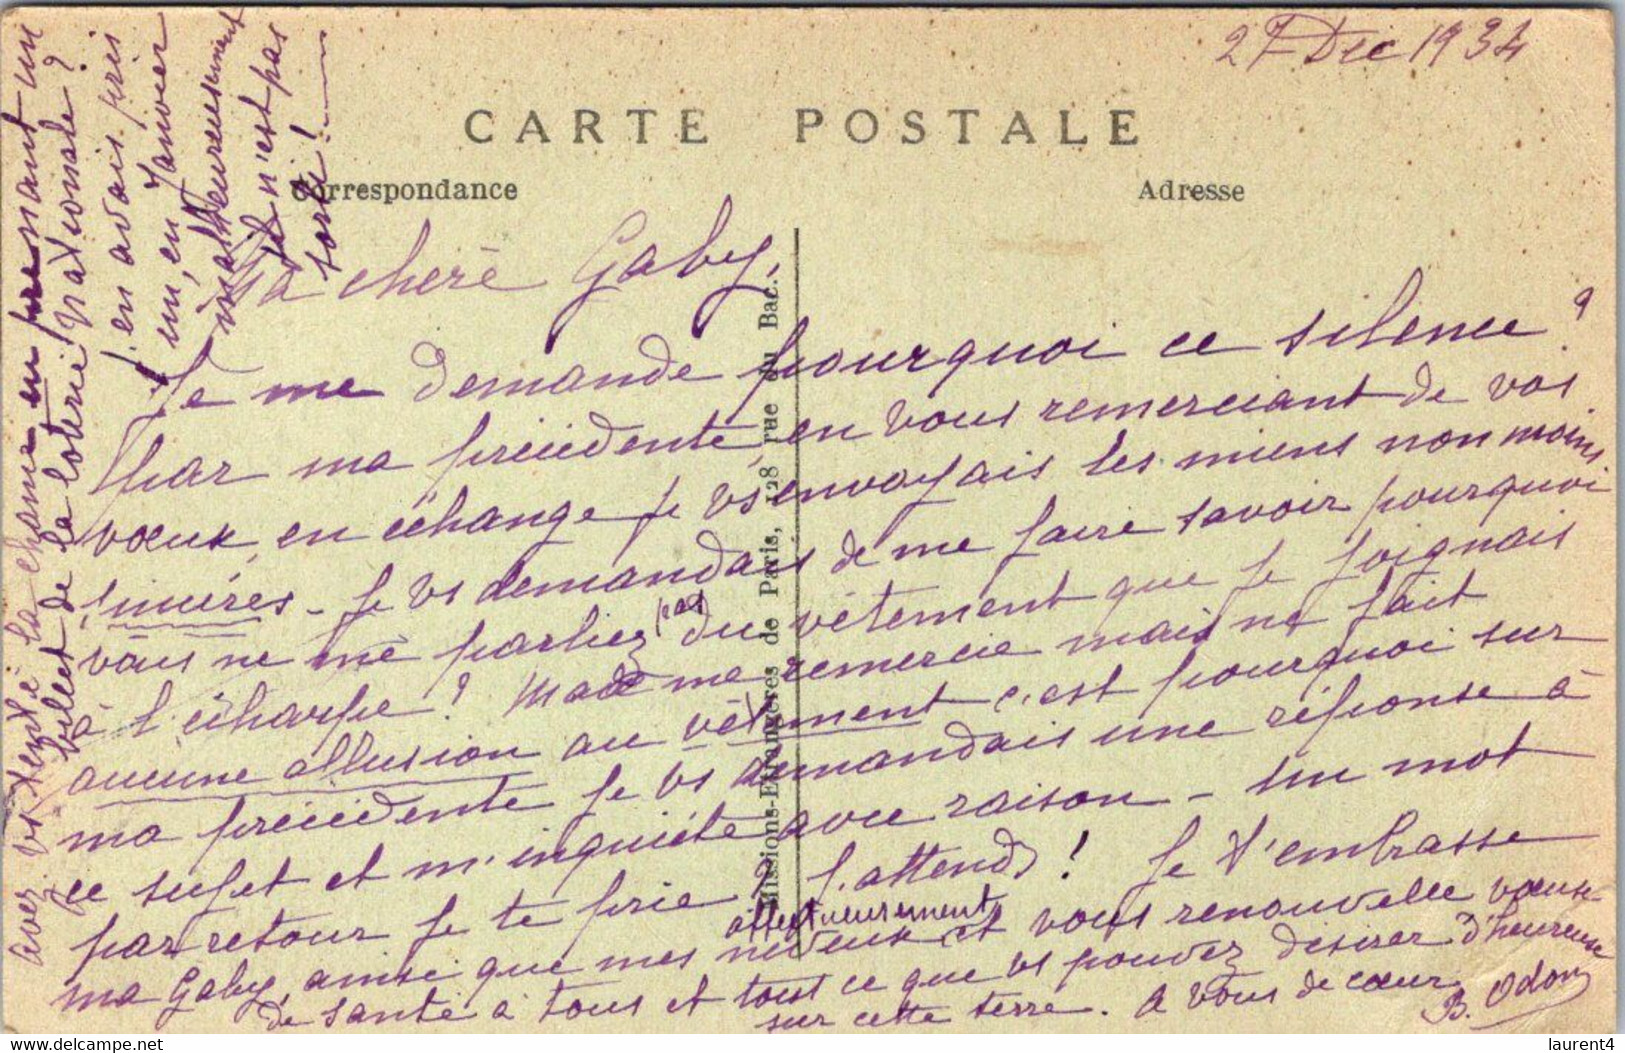 27 Dec 1934
CARTE POSTALE
Correspondance
Adresse
Missions-Etrangères de Paris, 128 rue du Bac.
Ma chère Gaby,
Je me demande pourquoi ce silence ?
par ma précédente, en vous remerciant de vos
vœux, en échange je vs envoyais les miens non moins
sincères - Je vs demandais de me faire savoir pourquoi
vous ne me parliez pas du vêtement que je joignais
à l'écharpe ? Made me remercie mais ne fait
aucune allusion au vêtement, c'est pourquoi sur
ma précédente je vs demandais une réponse à
ce sujet et m'inquiète avec raison - un mot
par retour je te prie ? J'attends ! Je t'embrasse
affectueusement
ma Gaby, ainsi que mes neveux et vous renouvelle vœux
de santé à tous et tout ce que vs pouvez désirer d'heureuse
sur cette terre. A vous de cœur. B. Odon
avez vs tenté la chance en prenant un
billet de la loterie nationale ?
j'en avais pris
un, en Janvier
malheureusement
il n'est pas
sorti !
laurent4
delcampe.net